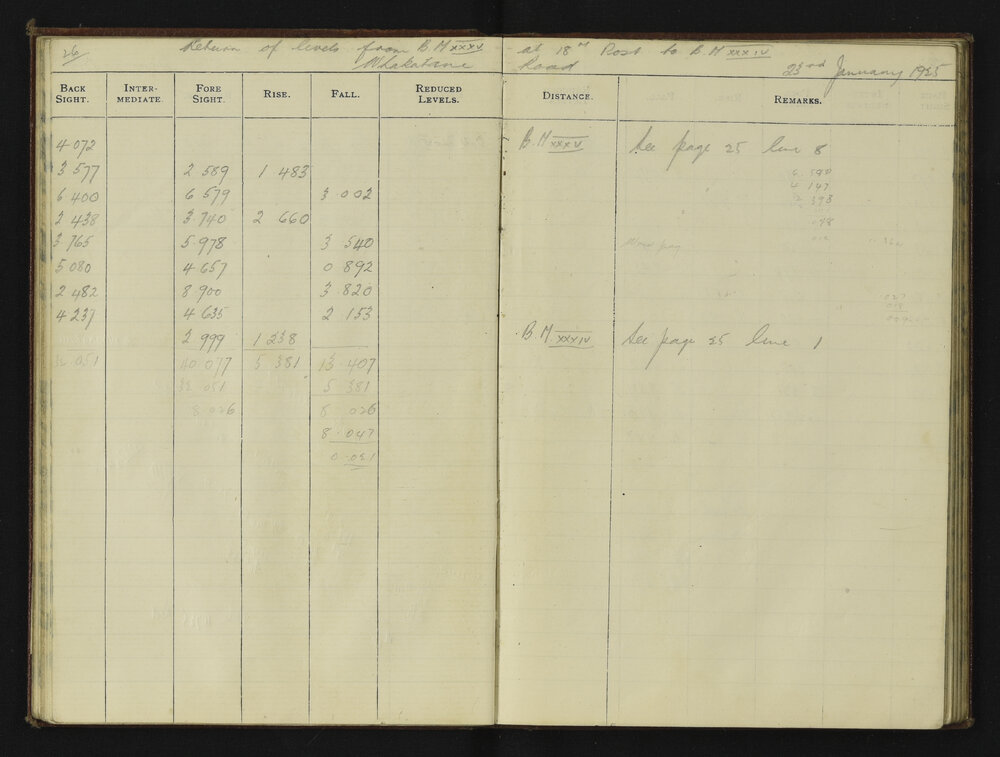 26 Return of levels from B M XXXV at 18 M Post to B M XXXIV
Whakatane Road 23rd January 1925
BACK SIGHT. INTER-MEDIATE. FORE SIGHT. RISE. FALL. REDUCED LEVELS. DISTANCE. REMARKS.
4 072 B.M XXXV See page 25 line 8
3 577 2 589 1 483
6 400 6 579 3 002
2 438 3 740 2 660
3 765 5 978 3 540
5 080 4 657 0 892
2 482 8 900 3 820
4 237 4 635 2 153
2 999 1 238 B.M XXXIV See page 25 line 1
32 051 40 077 5 381 13 407
32 051 5 381
8 026 8 026
8 047
0 021